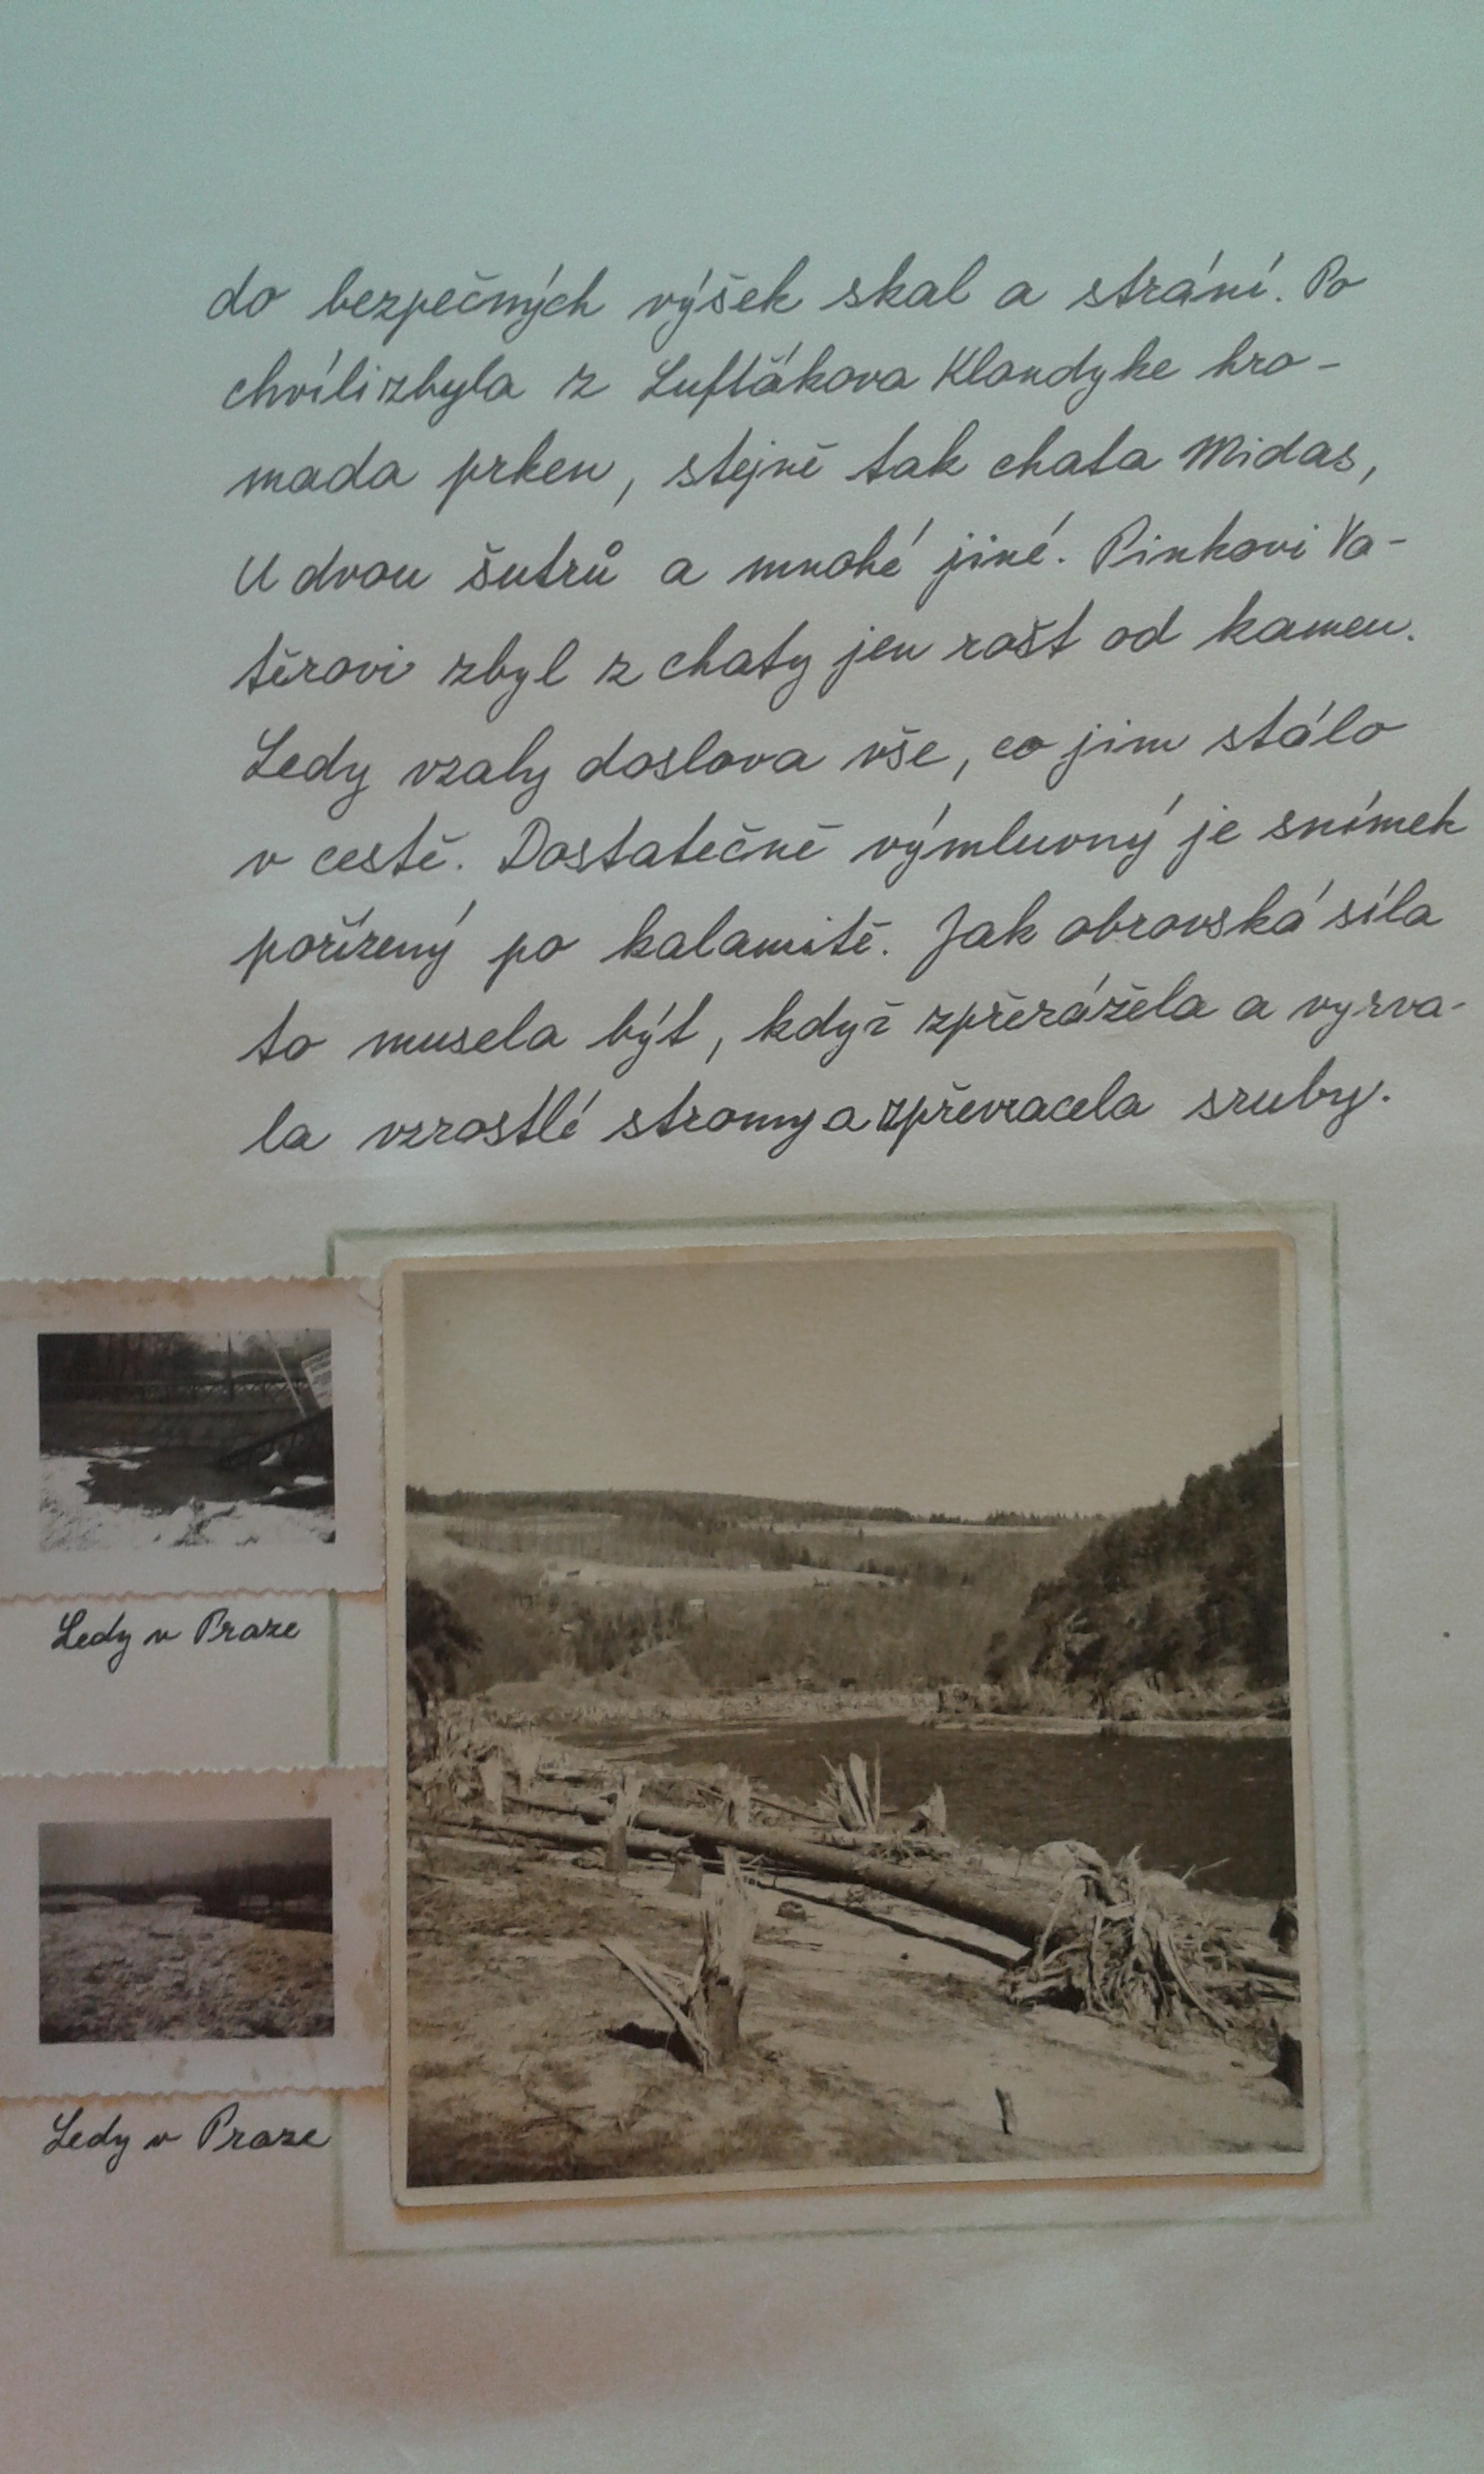 do bezpečných výšek skal a strání. Po
chvíli zbyla z Luftákova Klondyke hro-
mada prken, stejně tak chata Midas,
U dvou šutrů a mnohé jiné. Pinkovi Va-
těrovi zbyl z chaty jen rošt od kamen.
Ledy vzaly doslova vše, co jim stálo
v cestě. Dostatečně výmluvný je snímek
pořízený po kalamitě. Jak obrovská síla
to musela být, když zpřerážela a vyrva-
la vzrostlé stromy a zpřevracela sruby.
Ledy v Praze
Ledy v Praze